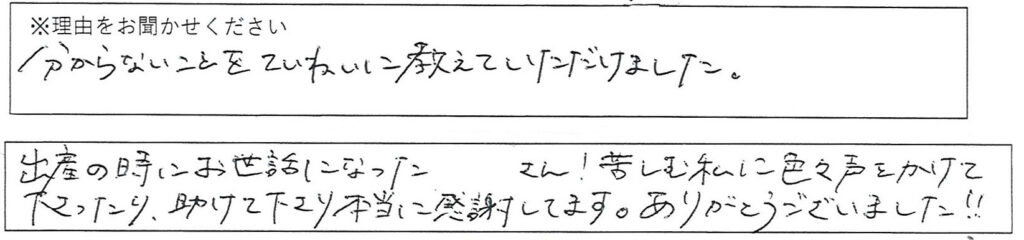 ※理由をお聞かせください
分からないことをていねいに教えていただけました。
出産の時にお世話になった さん!苦しむ私に色々声をかけて
下さったり、助けて下さり本当に感謝してます。ありがとうございました!!